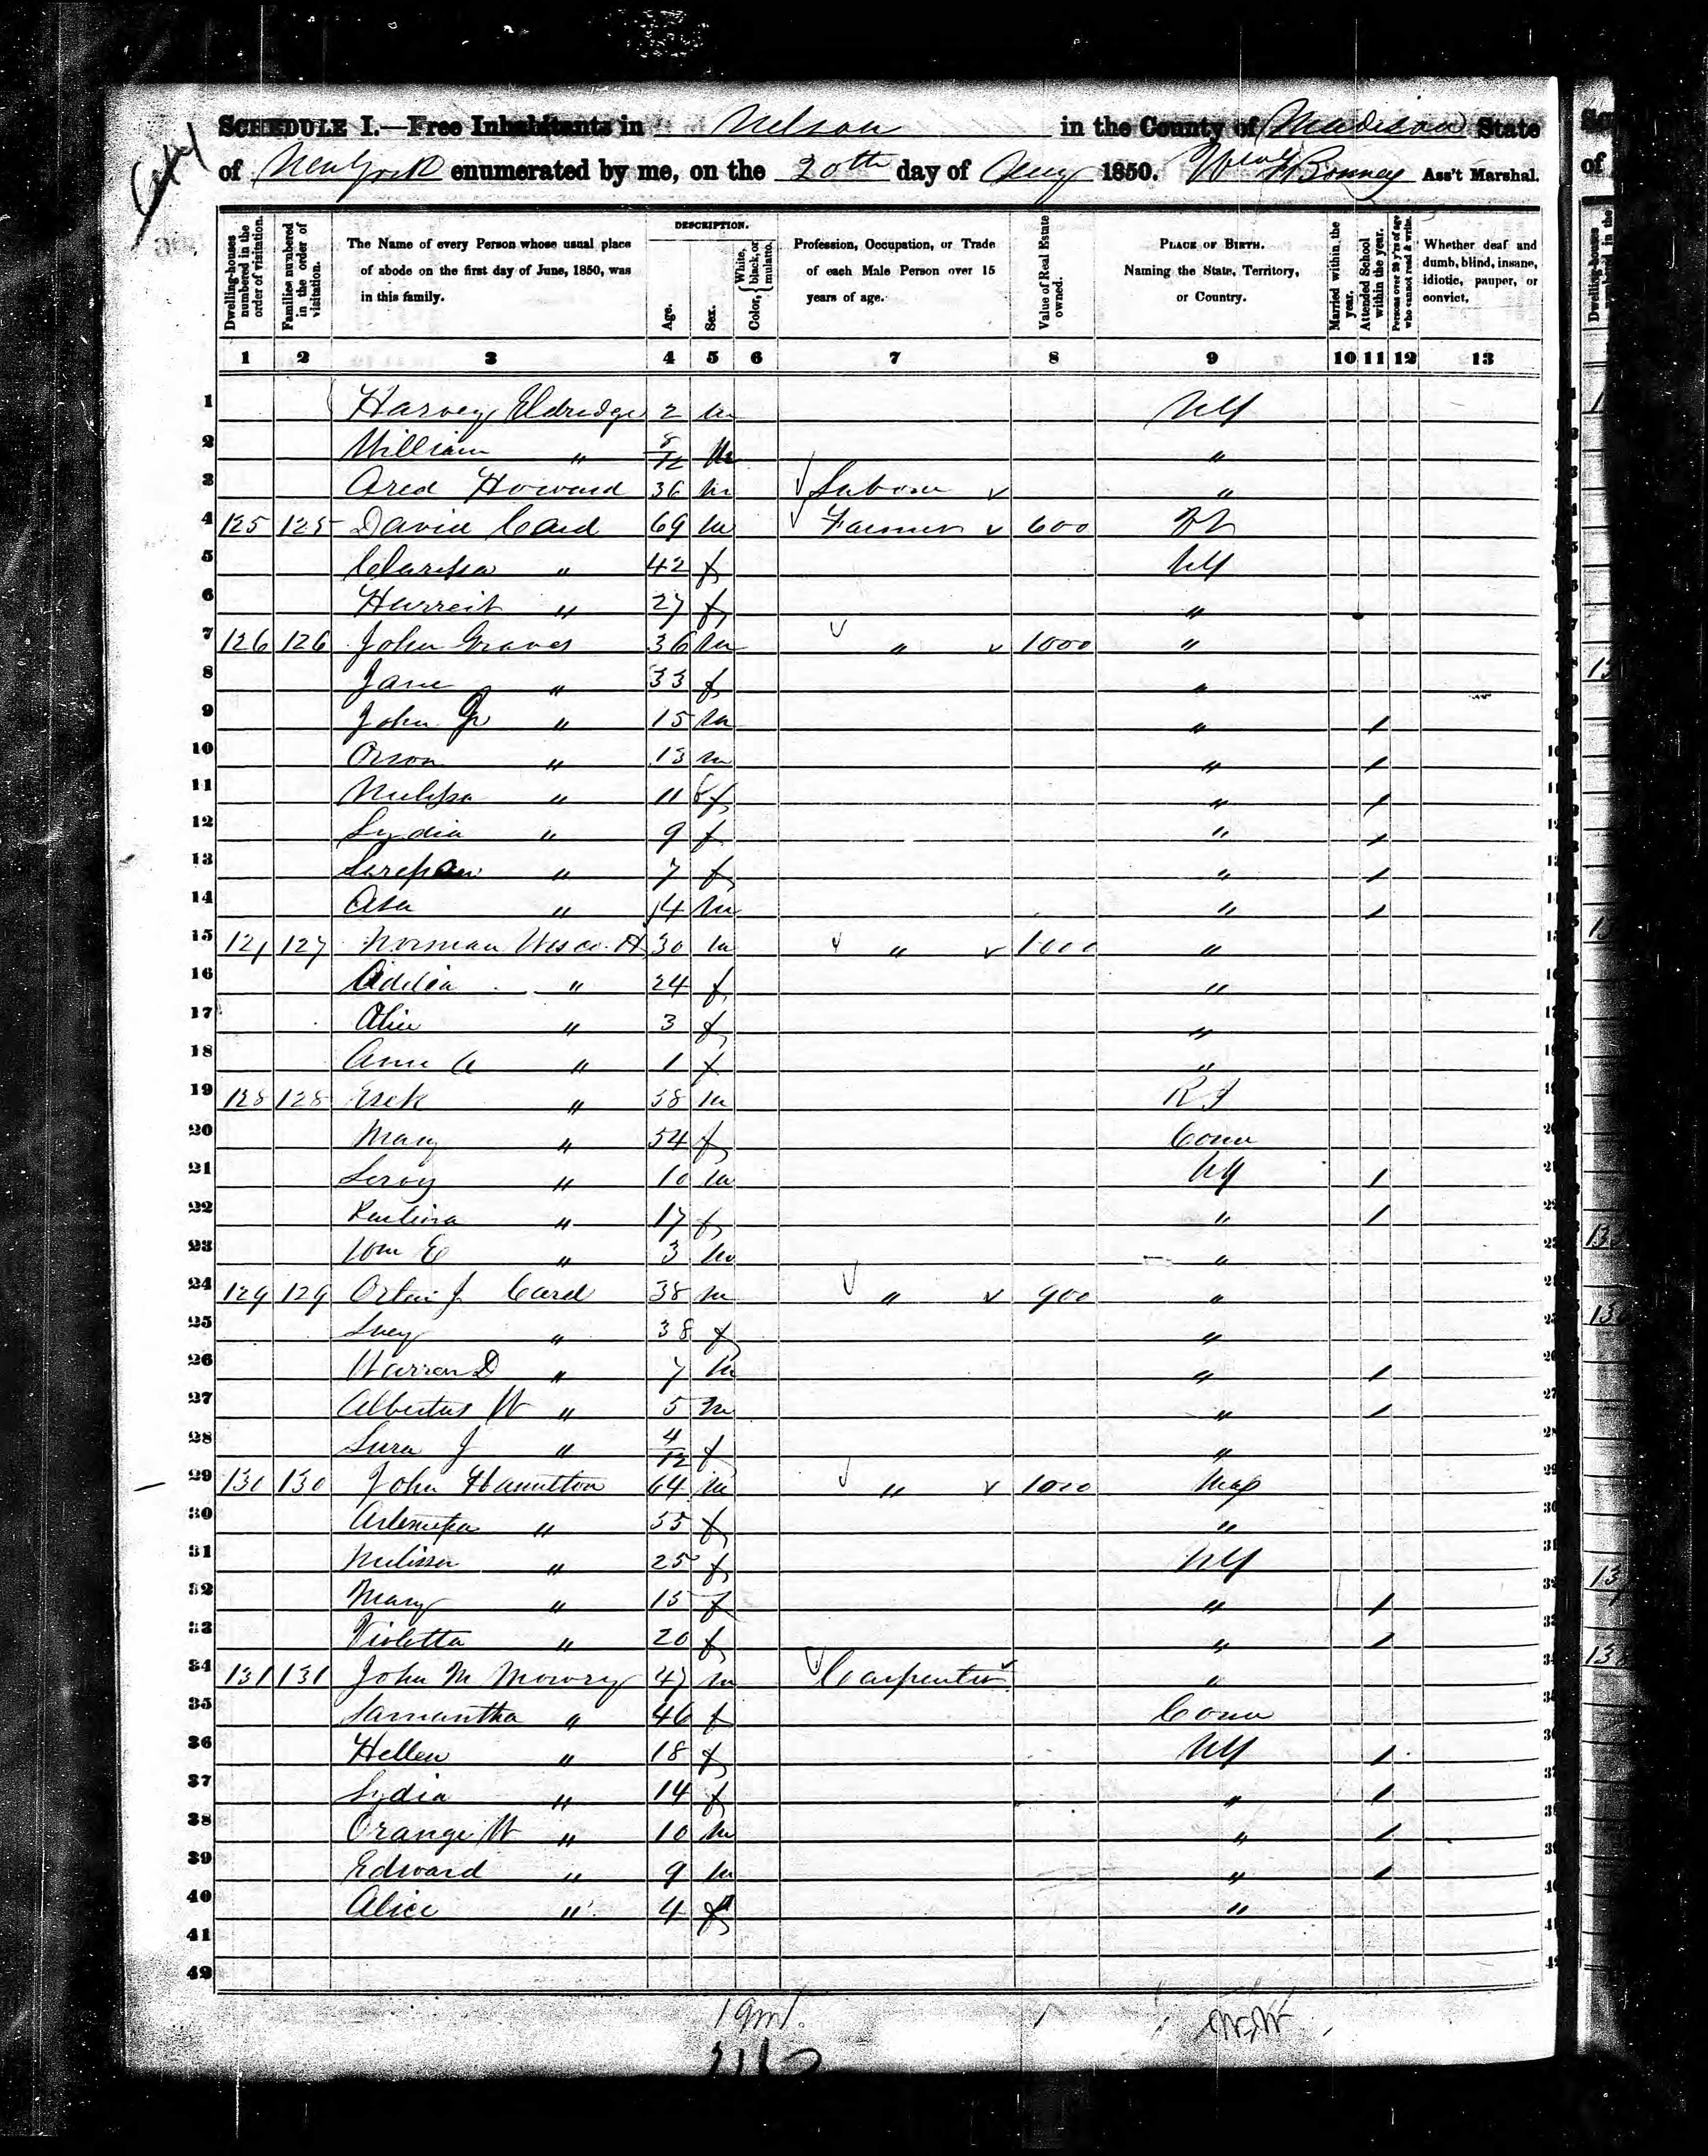 SCHEDULE I.—Free Inhabitants in Nelson in the County of Madison State
of New York enumerated by me, on the 20th day of Aug 1850. Bonney Ass't Marshal.
Dwelling-houses numbered in the order of visitation.
Families numbered in the order of visitation.
The Name of every Person whose usual place of abode on the first day of June, 1850, was in this family.
DESCRIPTION.
Age.
Sex.
Color, { White, black, or mulatto.
Profession, Occupation, or Trade of each Male Person over 15 years of age.
Value of Real Estate owned.
PLACE OF BIRTH. Naming the State, Territory, or Country.
Married within the year.
Attended School within the year.
Persons over 20 y'rs of age who cannot read & write.
Whether deaf and dumb, blind, insane, idiotic, pauper, or convict.
1 2 3 4 5 6 7 8 9 10 11 12 13
1 Harvey Eldridge 2 m NY
2 William " 8/12 m "
3 Howard 36 m Labour "
4 125 125 David Card 69 m Farmer 600
5 Clarissa " 42 f NY
6 Harreit " 27 f "
7 126 126 John Graves 36 m " 1000 "
8 Jane " 33 f "
9 John Jr " 15 m " /
10 Orson " 13 m " /
11 Melissa " 11 f " /
12 Lydia " 9 f " /
13 " 7 f " /
14 Asa " 14 m " /
15 127 127 Norman Wescott 30 m " 1000 "
16 " 24 f "
17 Alice " 3 f "
18 Ann A " 1 f "
19 128 128 Esek " 58 m R I
20 Mary " 54 f Conn
21 Leroy " 10 m NY /
22 " 17 f " /
23 Wm E " 3 m "
24 129 129 J Card 38 m " 900 "
25 Lucy " 38 f "
26 Warren D " 7 m " /
27 Albertus W " 5 m " /
28 Lura J " 4/12 f "
29 130 130 John Hamilton 64 m " 1000 Mass
30 Artemissa " 55 f "
31 Melissa " 25 f NY
32 Mary " 15 f " /
33 Violetta " 20 f " /
34 131 131 John M Mowry 47 m Carpenter "
35 Samantha " 46 f Conn
36 Hellen " 18 f NY /
37 Lydia " 14 f " /
38 Orange W " 10 m " /
39 Edward " 9 m " /
40 Alice " 4 f "
41
42
19m